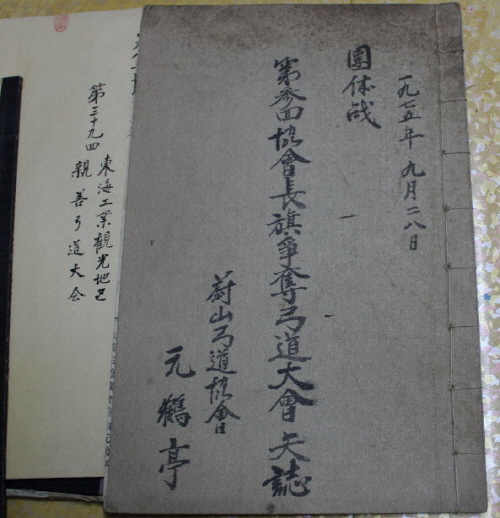 一九七五年 九月 二八日
團体戗
第参回協會長旗爭奪弓道大會 矢誌
蔚山弓道協會
元鶴亭
東海工業觀光地区
第三十九回 親善弓道大会